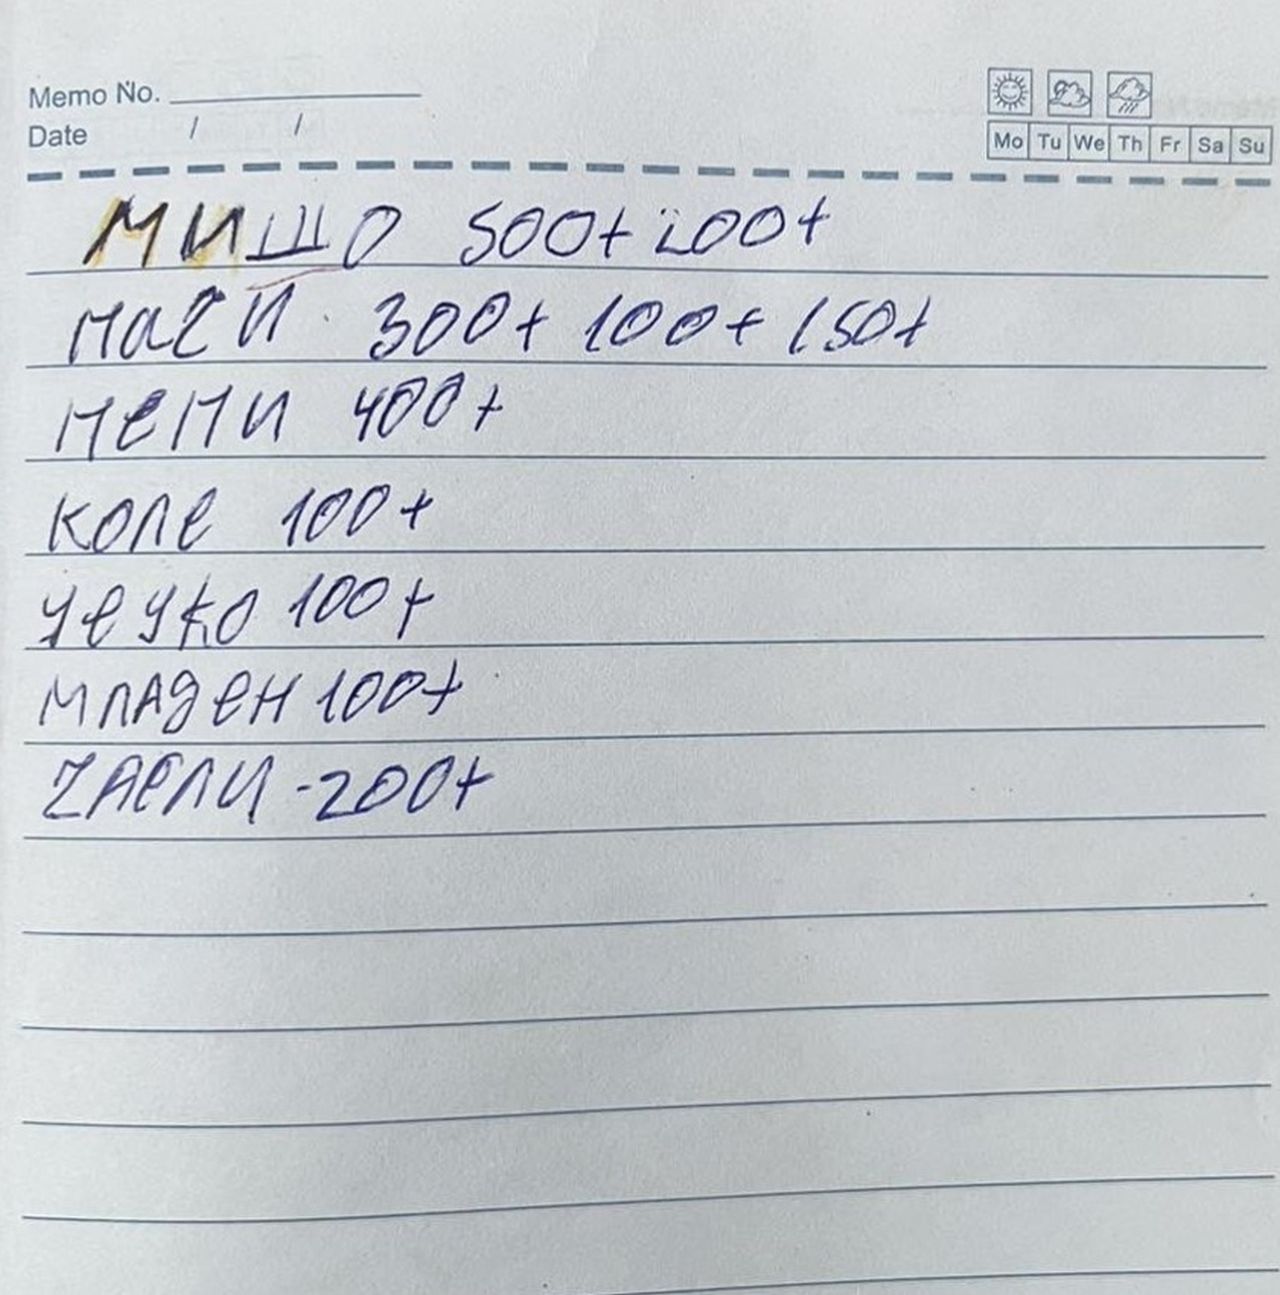 Memo No.
Date / /
Mo Tu We Th Fr Sa Su
МИШО 500+ 200+
300+ 100+ 150+
МЕМИ 400+
КОЛЕ 100+
ЧЕЧКО 100+
МЛАДЕН 100+
200+